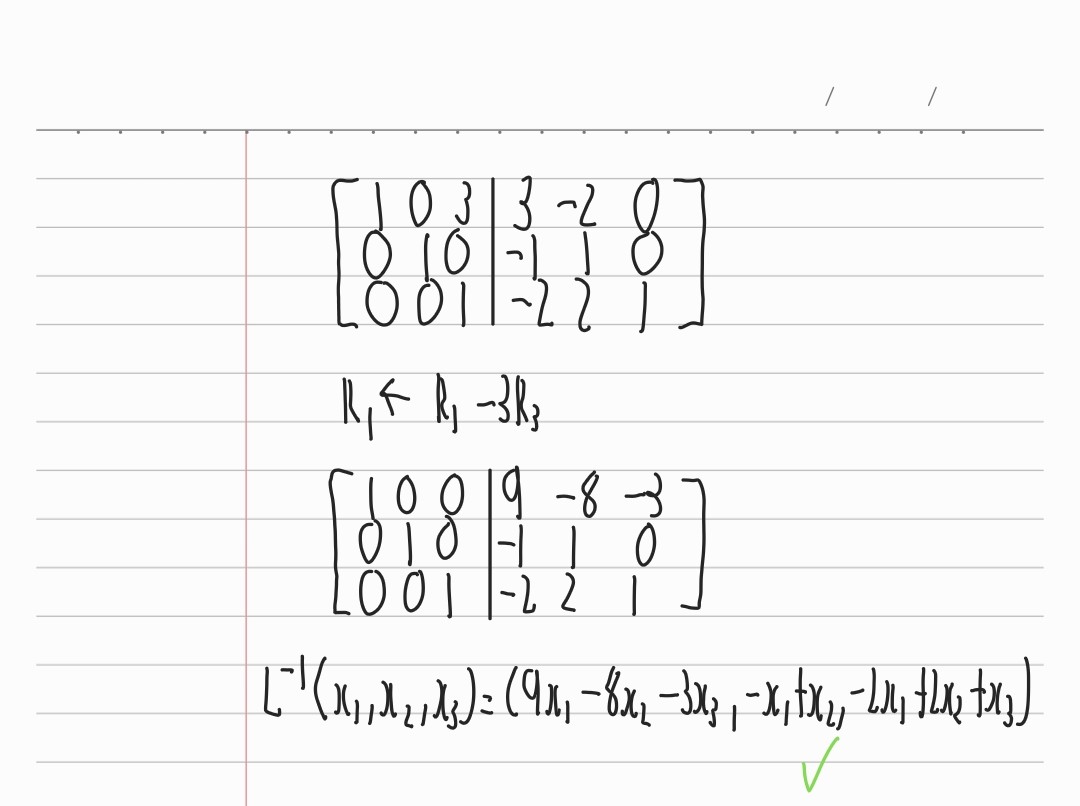 / /
[1 0 3 | 3 -2 0]
[0 1 0 | -1 1 0]
[0 0 1 | -2 2 1]
R₁ ← R₁ -3R₃
[1 0 0 | 9 -8 -3]
[0 1 0 | -1 1 0]
[0 0 1 | -2 2 1]
L⁻¹(x₁, x₂, x₃) = (9x₁ -8x₂ -3x₃, -x₁+x₂, -2x₁+2x₂+x₃)
✓